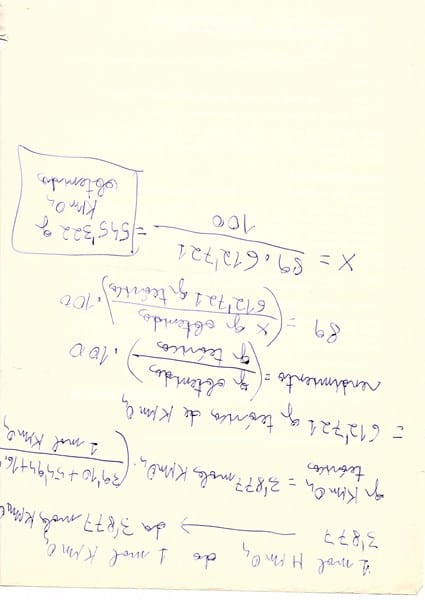 1 mol HMnO₄ da 1 mol KMnO₄
3'877 ⟶ da 3'877 mols KMnO₄
g KMnO₄ teóricos = 3'877 mols KMnO₄ · (39'10+54'94+16 / 1 mol KMnO₄
= 612'721 g teóricos de KMnO₄
rendimiento = (g obtenidos / g teóricos) · 100
89 = (x g obtenidos / 612'721 g teóricos) · 100
x = 89 · 612'721 / 100 = 545'322 g
KMnO₄
obtenidos